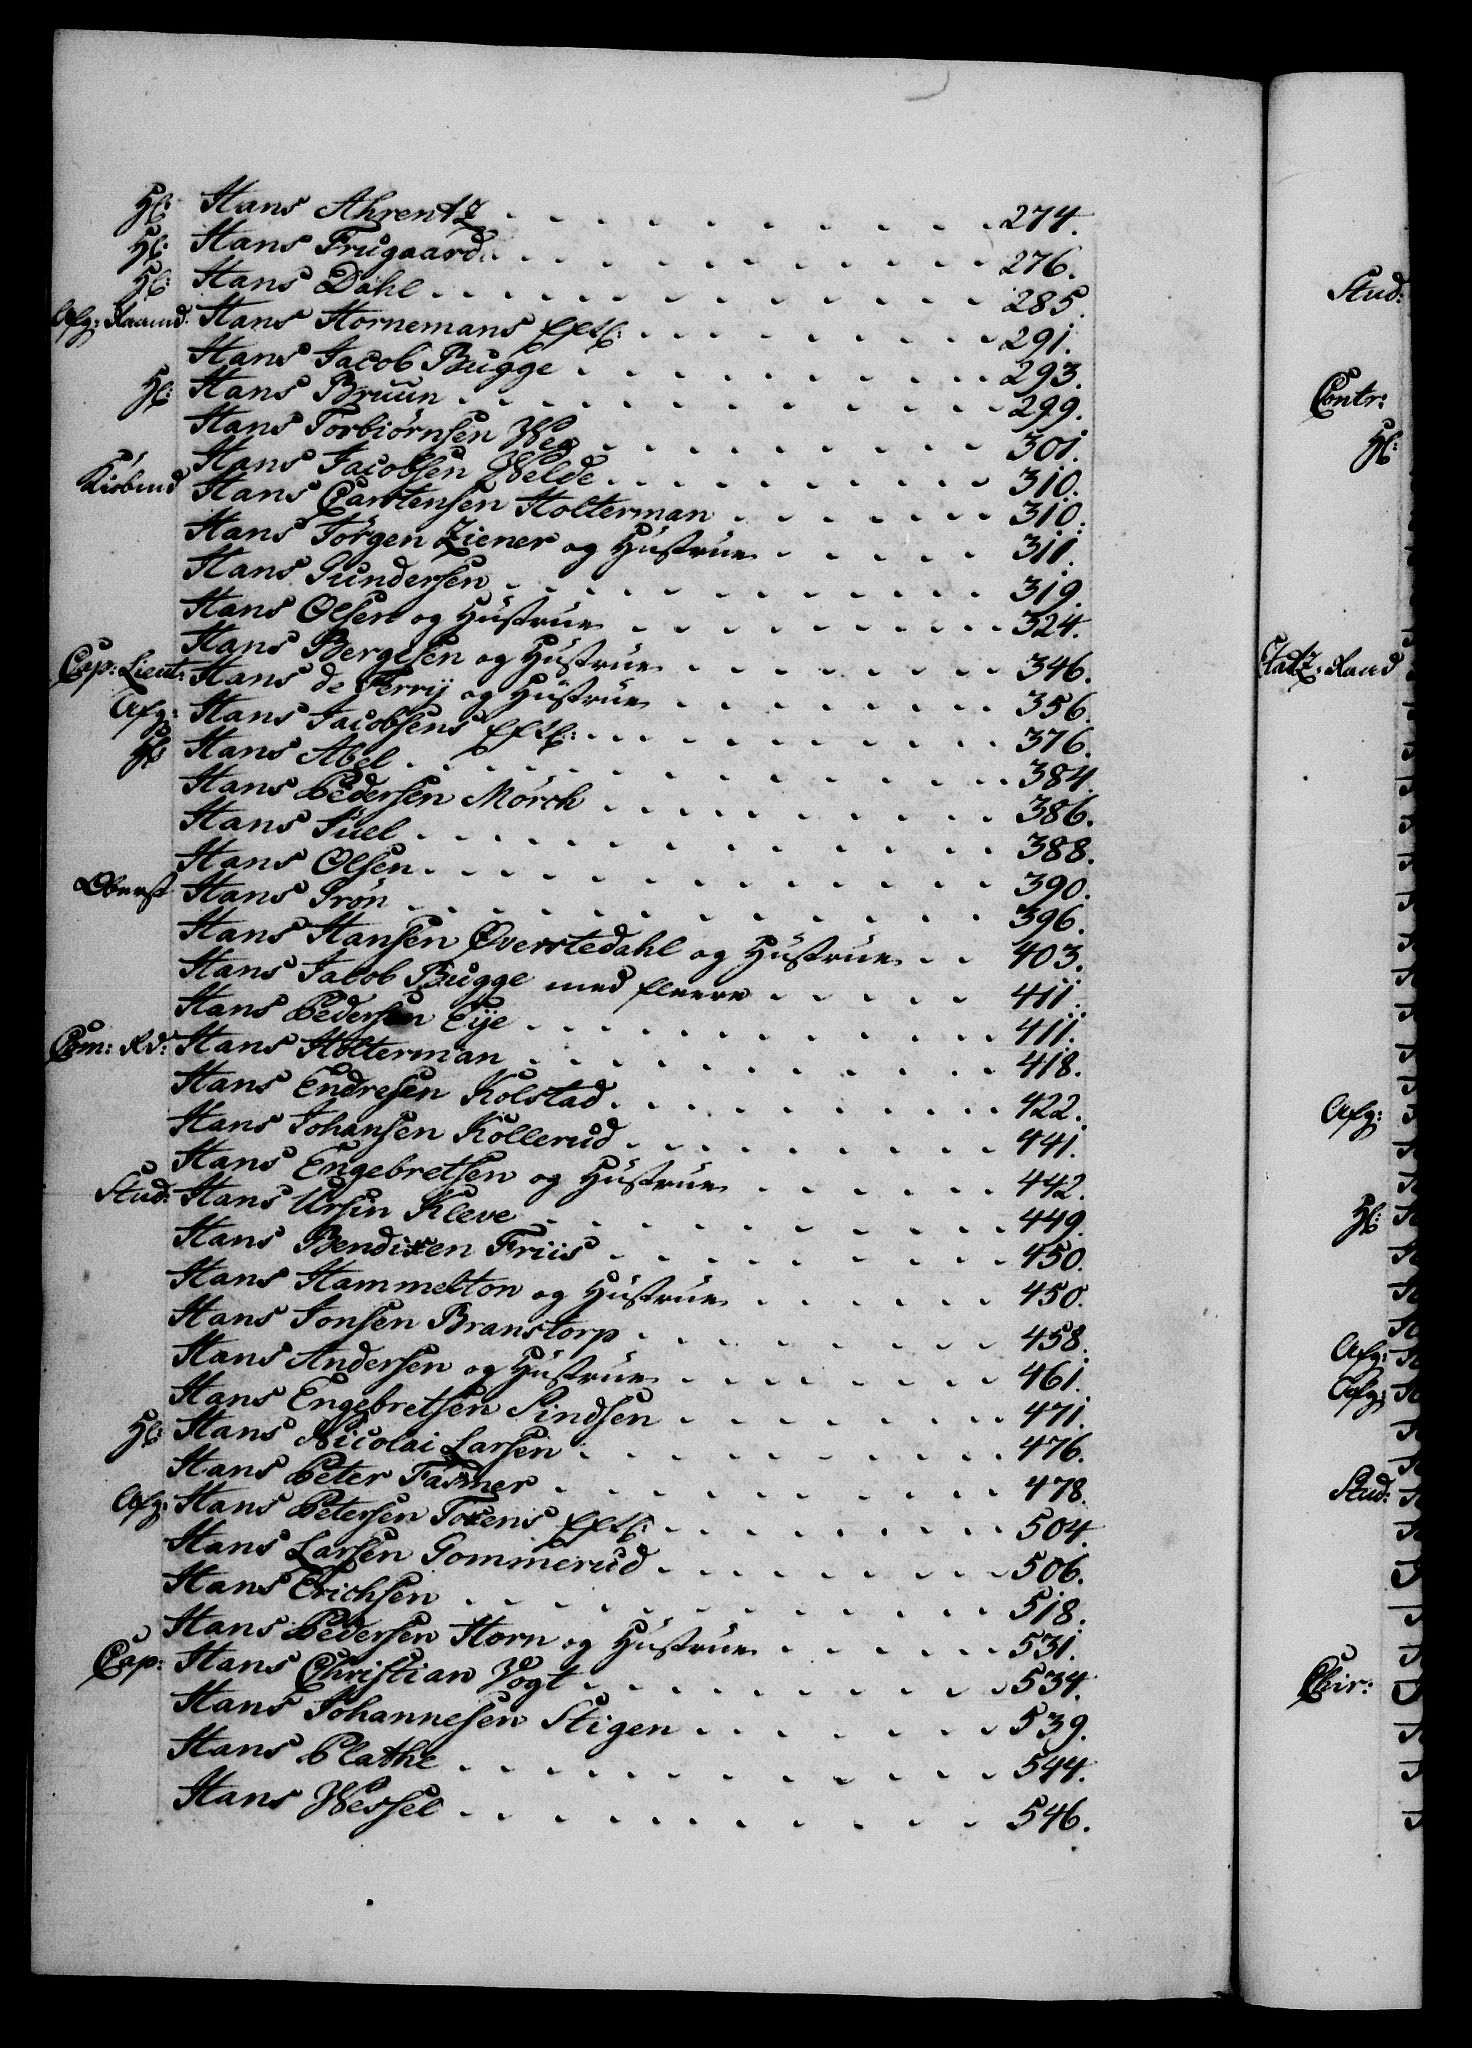 Hl: Hans Ahrentz 274.
Hl: Hans Frugaard 276.
Hl: Hans Dahl 285.
Afg: Raamd. Hans Hornemans Eftl: 291.
Hans Jacob Bugge 293.
Hl: Hans Bruun 299.
Hans Torbiörnsen Weg 301.
Hans Jacobsen Welde 310.
Kiöbmd Hans Carstensen Holterman 310.
Hans Jörgen Ziener og Hustrue 311.
Hans Gundersen 319.
Hans Olsen og Hustrue 324.
Hans Bergesen og Hustrue 346.
Cap: Lieut: Hans de Ferrij og Hustrue 356.
Afg: Hans Jacobsens Eftl: 376.
Hl: Hans Abel 384.
Hans Pedersen Mörch 386.
Hans Juel 388.
Hans Olsen 390.
Oberst Hans Grön 396.
Hans Hansen Overstedahl og Hustrue 403.
Hans Jacob Bugge med fleere 411.
Hans Pedersen Eije 411.
Com: Rd: Hans Holterman 418.
Hans Endresen Kolstad 422.
Hans Johansen Kollerud 441.
Hans Engebretsen og Hustrue 442.
Stud: Hans Ursin Kleve 449.
Hans Bendixen Friis 450.
Hans Hammelton og Hustrue 450.
Hans Jonsen Branstorp 458.
Hans Andersen og Hustrue 461.
Hans Engebretsen Sindsen 471.
Hl: Hans Nicolai Larsen 476.
Hans Peter Fasmer 478.
Afg: Hans Petersen Toxens Eftl: 504.
Hans Larsen Gommerud 506.
Hans Erichsen 518.
Hans Pedersen Horn og Hustrue 531.
Cap: Hans Christian Vogt 534.
Hans Johannesen Stigen 539.
Hans Plathe 544.
Hans Wessel 546.
Stud:
Contr:
Hl:
Afg:
Hl:
Afg:
Afg:
Stud:
Chir: